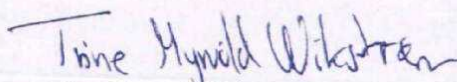 Trine Myrvold Wikstrøm